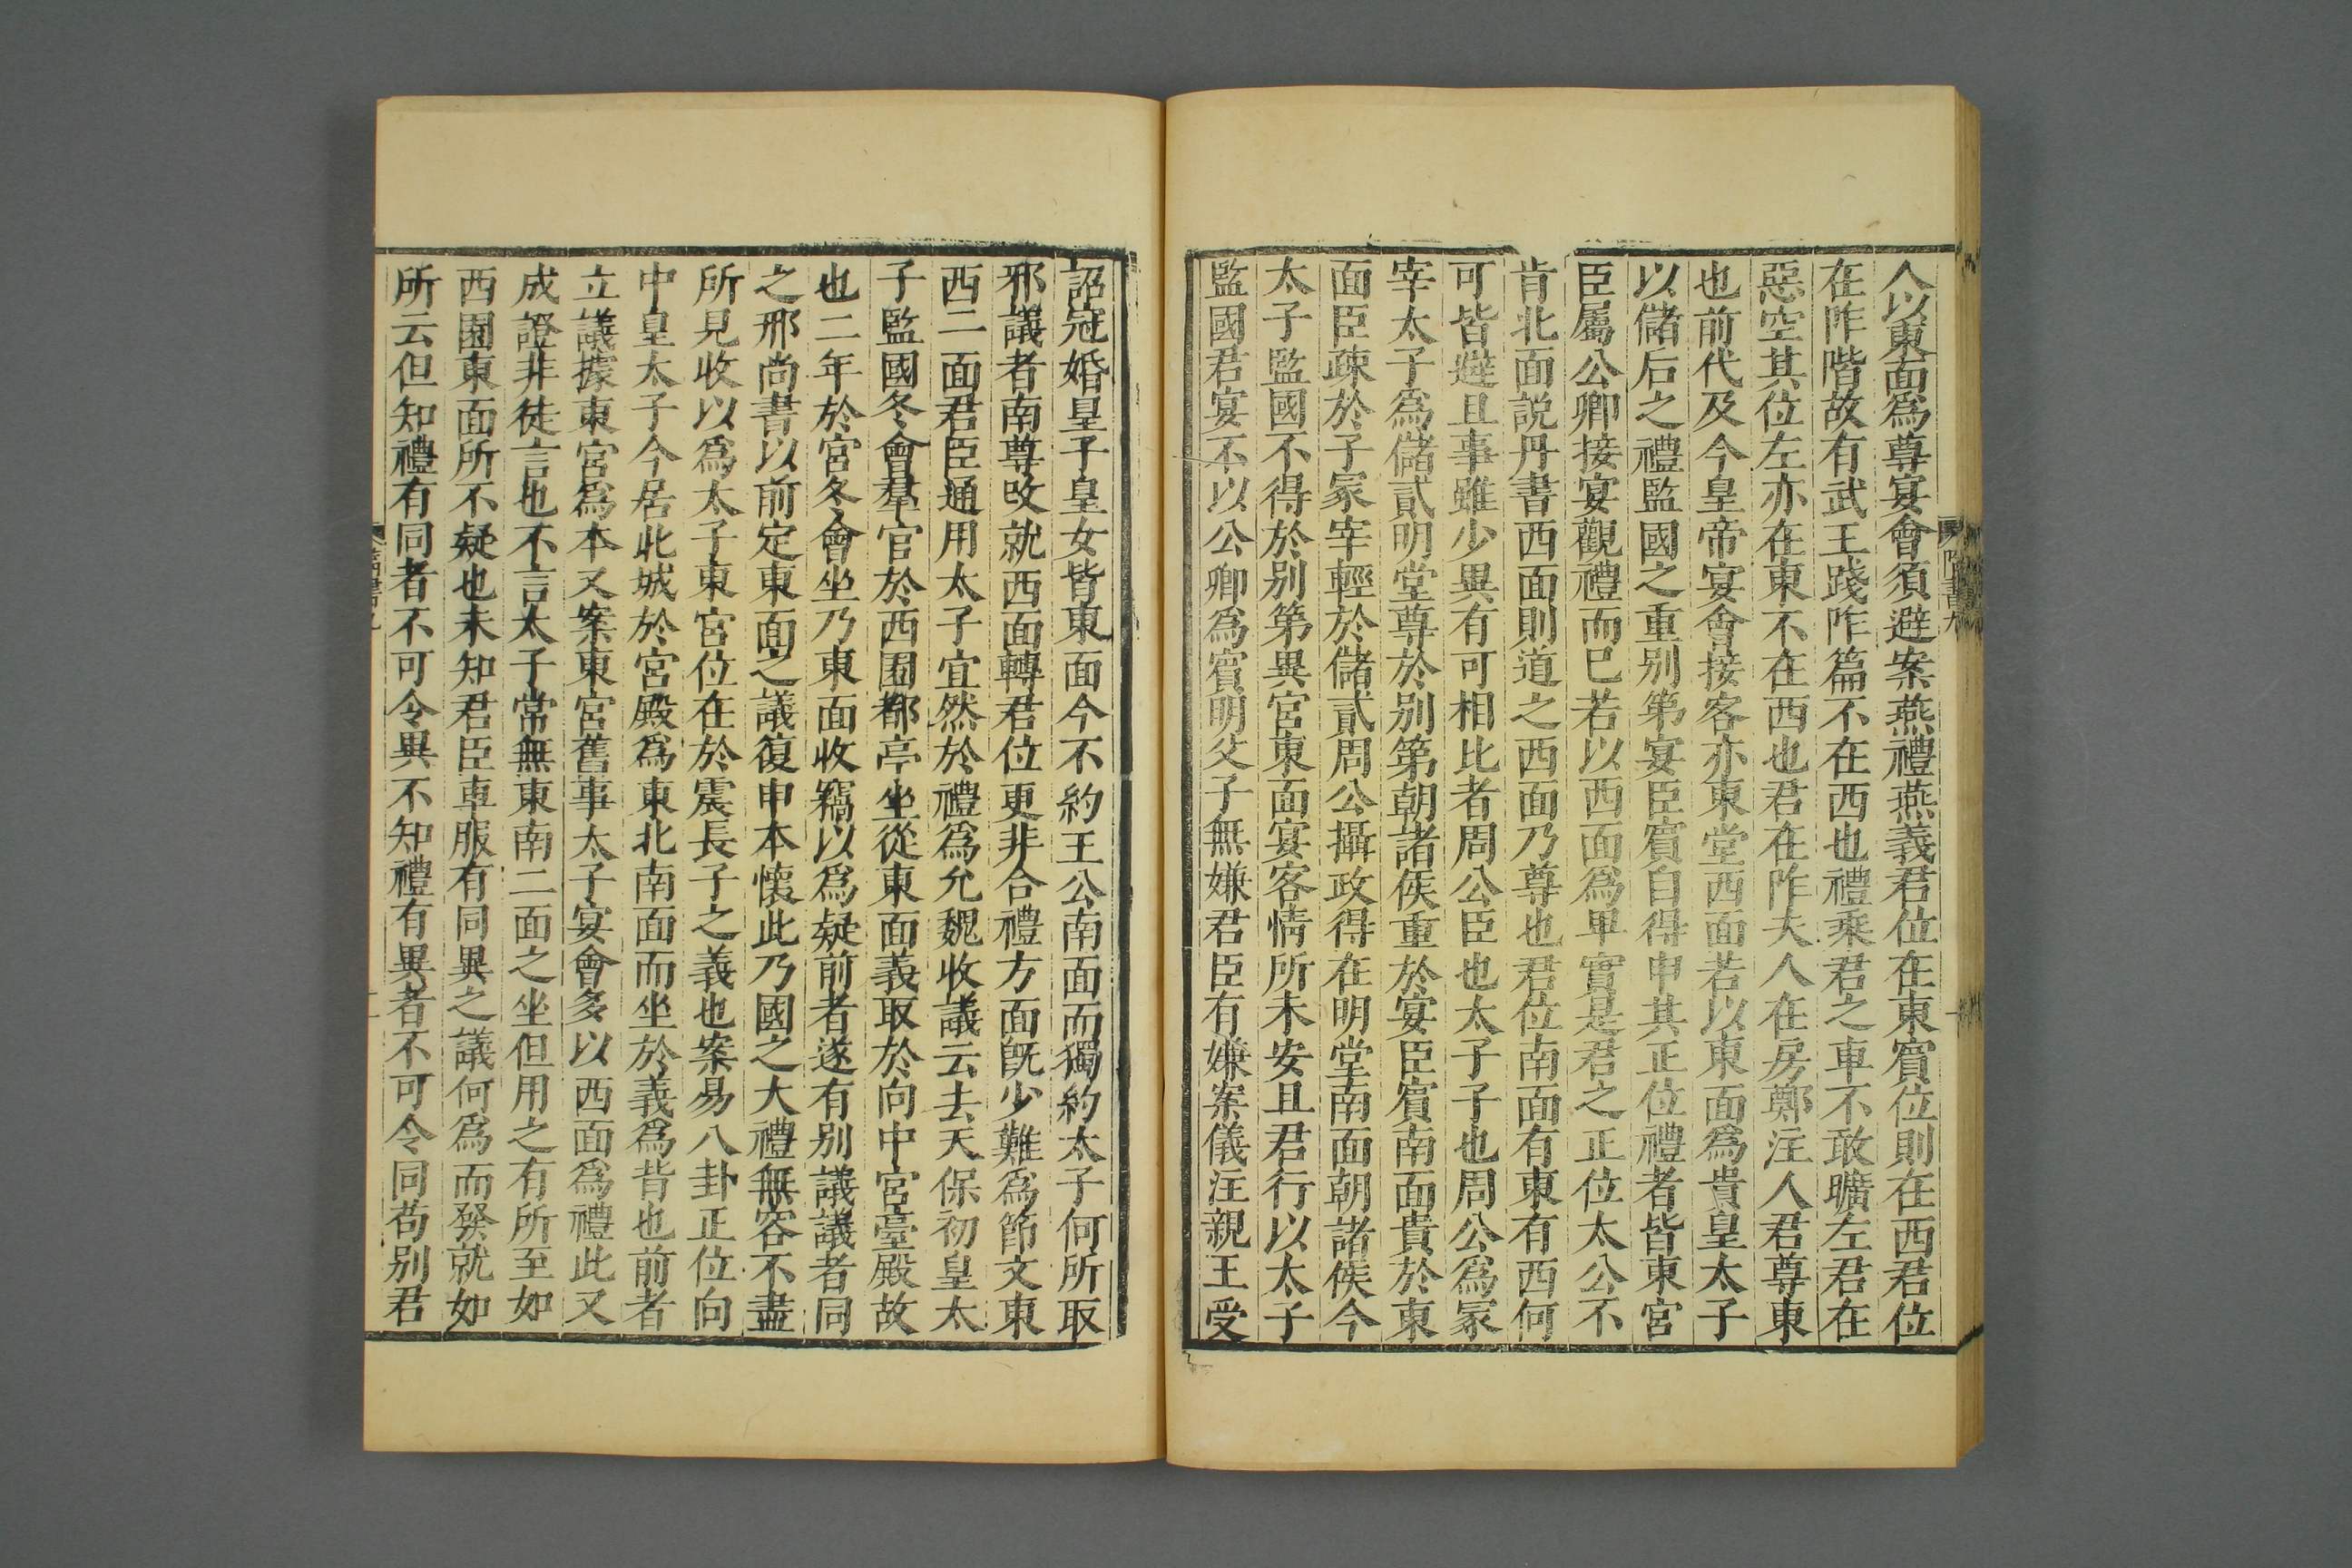 人以東面為尊宴會須避案燕禮燕義君位在東賓位則在西君位
在阼階故有武王踐阼篇不在西也禮乘君之車不敢曠左君在
惡空其位左亦在東不在西也君在阼夫人在房鄭注人君尊東
也前代及今皇帝宴會接客亦東堂西面若以東面為貴皇太子
以儲后之禮監國之重別第宴臣賓自得申其正位禮者皆東宮
臣屬公卿接宴觀禮而已若以西面為卑實是君之正位太公不
肯北面説丹書西面則道之西面乃尊也君位南面有東有西何
可皆避且事雖少異有可相比者周公臣也太子子也周公為冢
宰太子為儲貳明堂尊於別第朝諸侯重於宴臣賓南面貴於東
面臣疎於子冢宰輕於儲貳周公攝政得在明堂南面朝諸侯今
太子監國不得於別第異宮東面宴客情所未安且君行以太子
監國君宴不以公卿為賓明父子無嫌君臣有嫌案儀注親王受
詔冠婚皇子皇女皆東面今不約王公南面而獨約太子何所取
邪議者南尊改就西面轉君位更非合禮方面既少難為節文東
西二面君臣通用太子宜然於禮為允魏收議云去天保初皇太
子監國冬會羣官於西園都亭坐從東面義取於向中宮臺殿故
也二年於宮冬會坐乃東面收竊以為疑前者遂有別議議者同
之邢尚書以前定東面之議復申本懷此乃國之大禮無容不盡
所見收以為太子東宮位在於震長子之義也案易八卦正位向
中皇太子今居北城於宮殿為東北南面而坐於義為背也前者
立議據東宮為本又案東宮舊事太子宴會多以西面為禮此又
成證非徒言也不言太子常無東南二面之坐但用之有所至如
西園東面所不疑也未知君臣車服有同異之議何為而發就如
所云但知禮有同者不可令異不知禮有異者不可令同苟別君